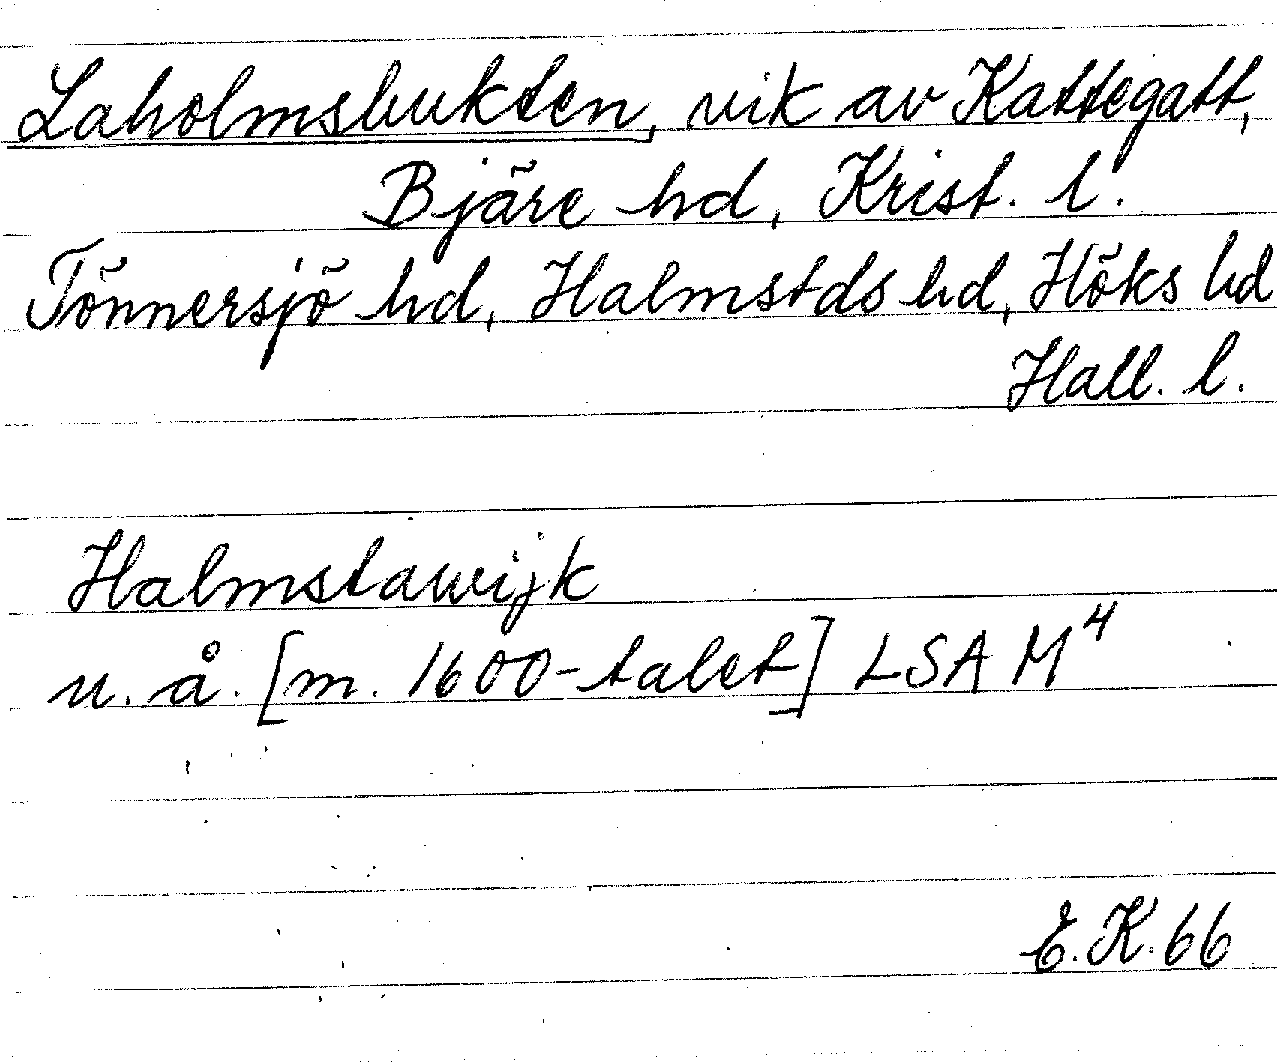 Laholmsbukten, vik av Kattegatt,
Bjäre hd, Krist. l.
Tönnersjö hd, Halmstds hd, Höks hd
Hall. l.
Halmstawijk
u. å. [m. 1600-talet] LSA M⁴
E.K. 66